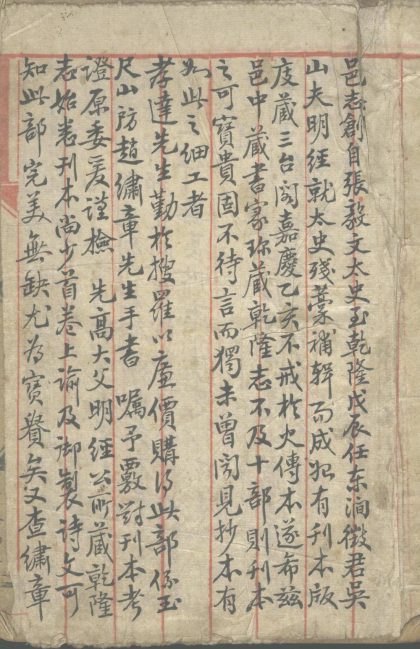 邑志創自張毅文太史至乾隆戊辰任东澗徵君吳
山夫明經就太史殘藁補輯而成始有刊本版
庋藏三台閣嘉慶乙亥不戒於火傳本遂希兹
邑中藏書家珎藏乾隆志不及十部則刊本
之可寶貴固不待言而獨未曾闻見抄本有
如此之细工者
孝達先生勤於搜羅以廉價購得此部係玉
尺山房趙繡章先生手書 嘱予覈對刊本考
證原委爰謹檢 先高大父明經公所藏乾隆
志始悉刊本尚少首卷上諭及御製詩文可
知此部完美無缺尤為寶貴矣又查繡章